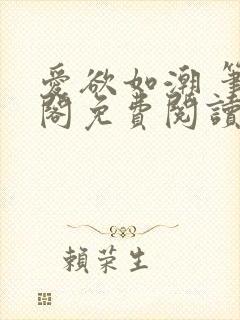 愛欲如潮 筆
閣免費閱讀
賴荣生